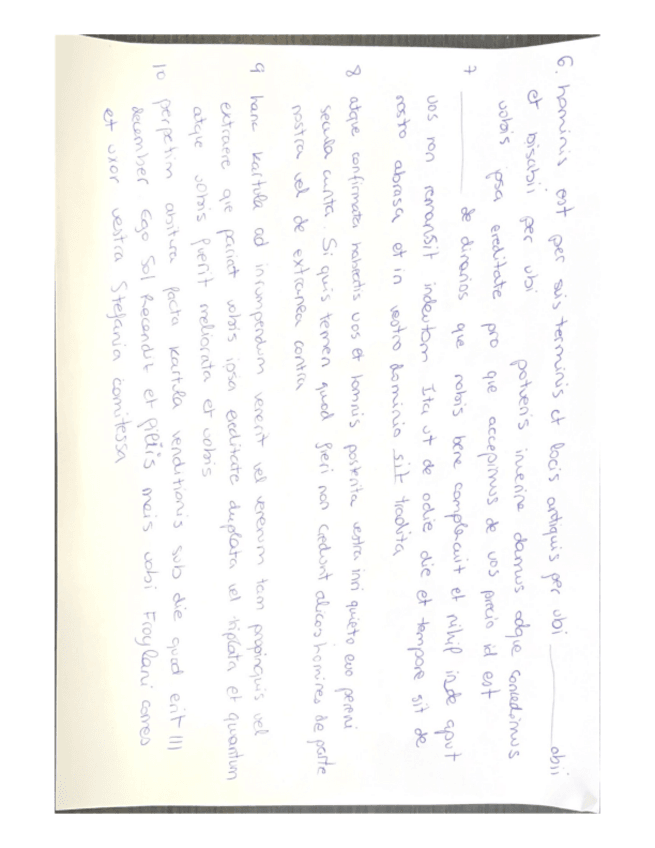 6. hominis est per suis terminis et locis antiquis per ubi ______ obii
et bisabii per ubi potueris invenire damus adque concedimus
vobis ipsa ereditate pro que accepimus de vos precio id est
7 ______ de dinarios que nobis bene complacuit et nihip inde aput
vos non remansit indeutom Ita ut de odie die et tempore sit de
nosto abrasa et in vestro dominio sit tradita
8 atque confirmata habeatis vos et homnis posterita vestra iuri quieto evo pereni
secula cunta. Si quis temen quod fieri non credunt alicos homines de parte
nostra vel de extranea contra
9 hanc kartula ad inrumpendum venerit vel venerum tam propinquis vel
extraere que pariat vobis ipsa ereditate duplata vel triplata et quantum
atque vobis fuerit meliorata et vobis
10 perpetim abitura facta kartula venditionis sub die quod erit III
december Ego Sol Recendit et filiis meis vobi Froylani comes
et uxor vestra Stefania comitessa